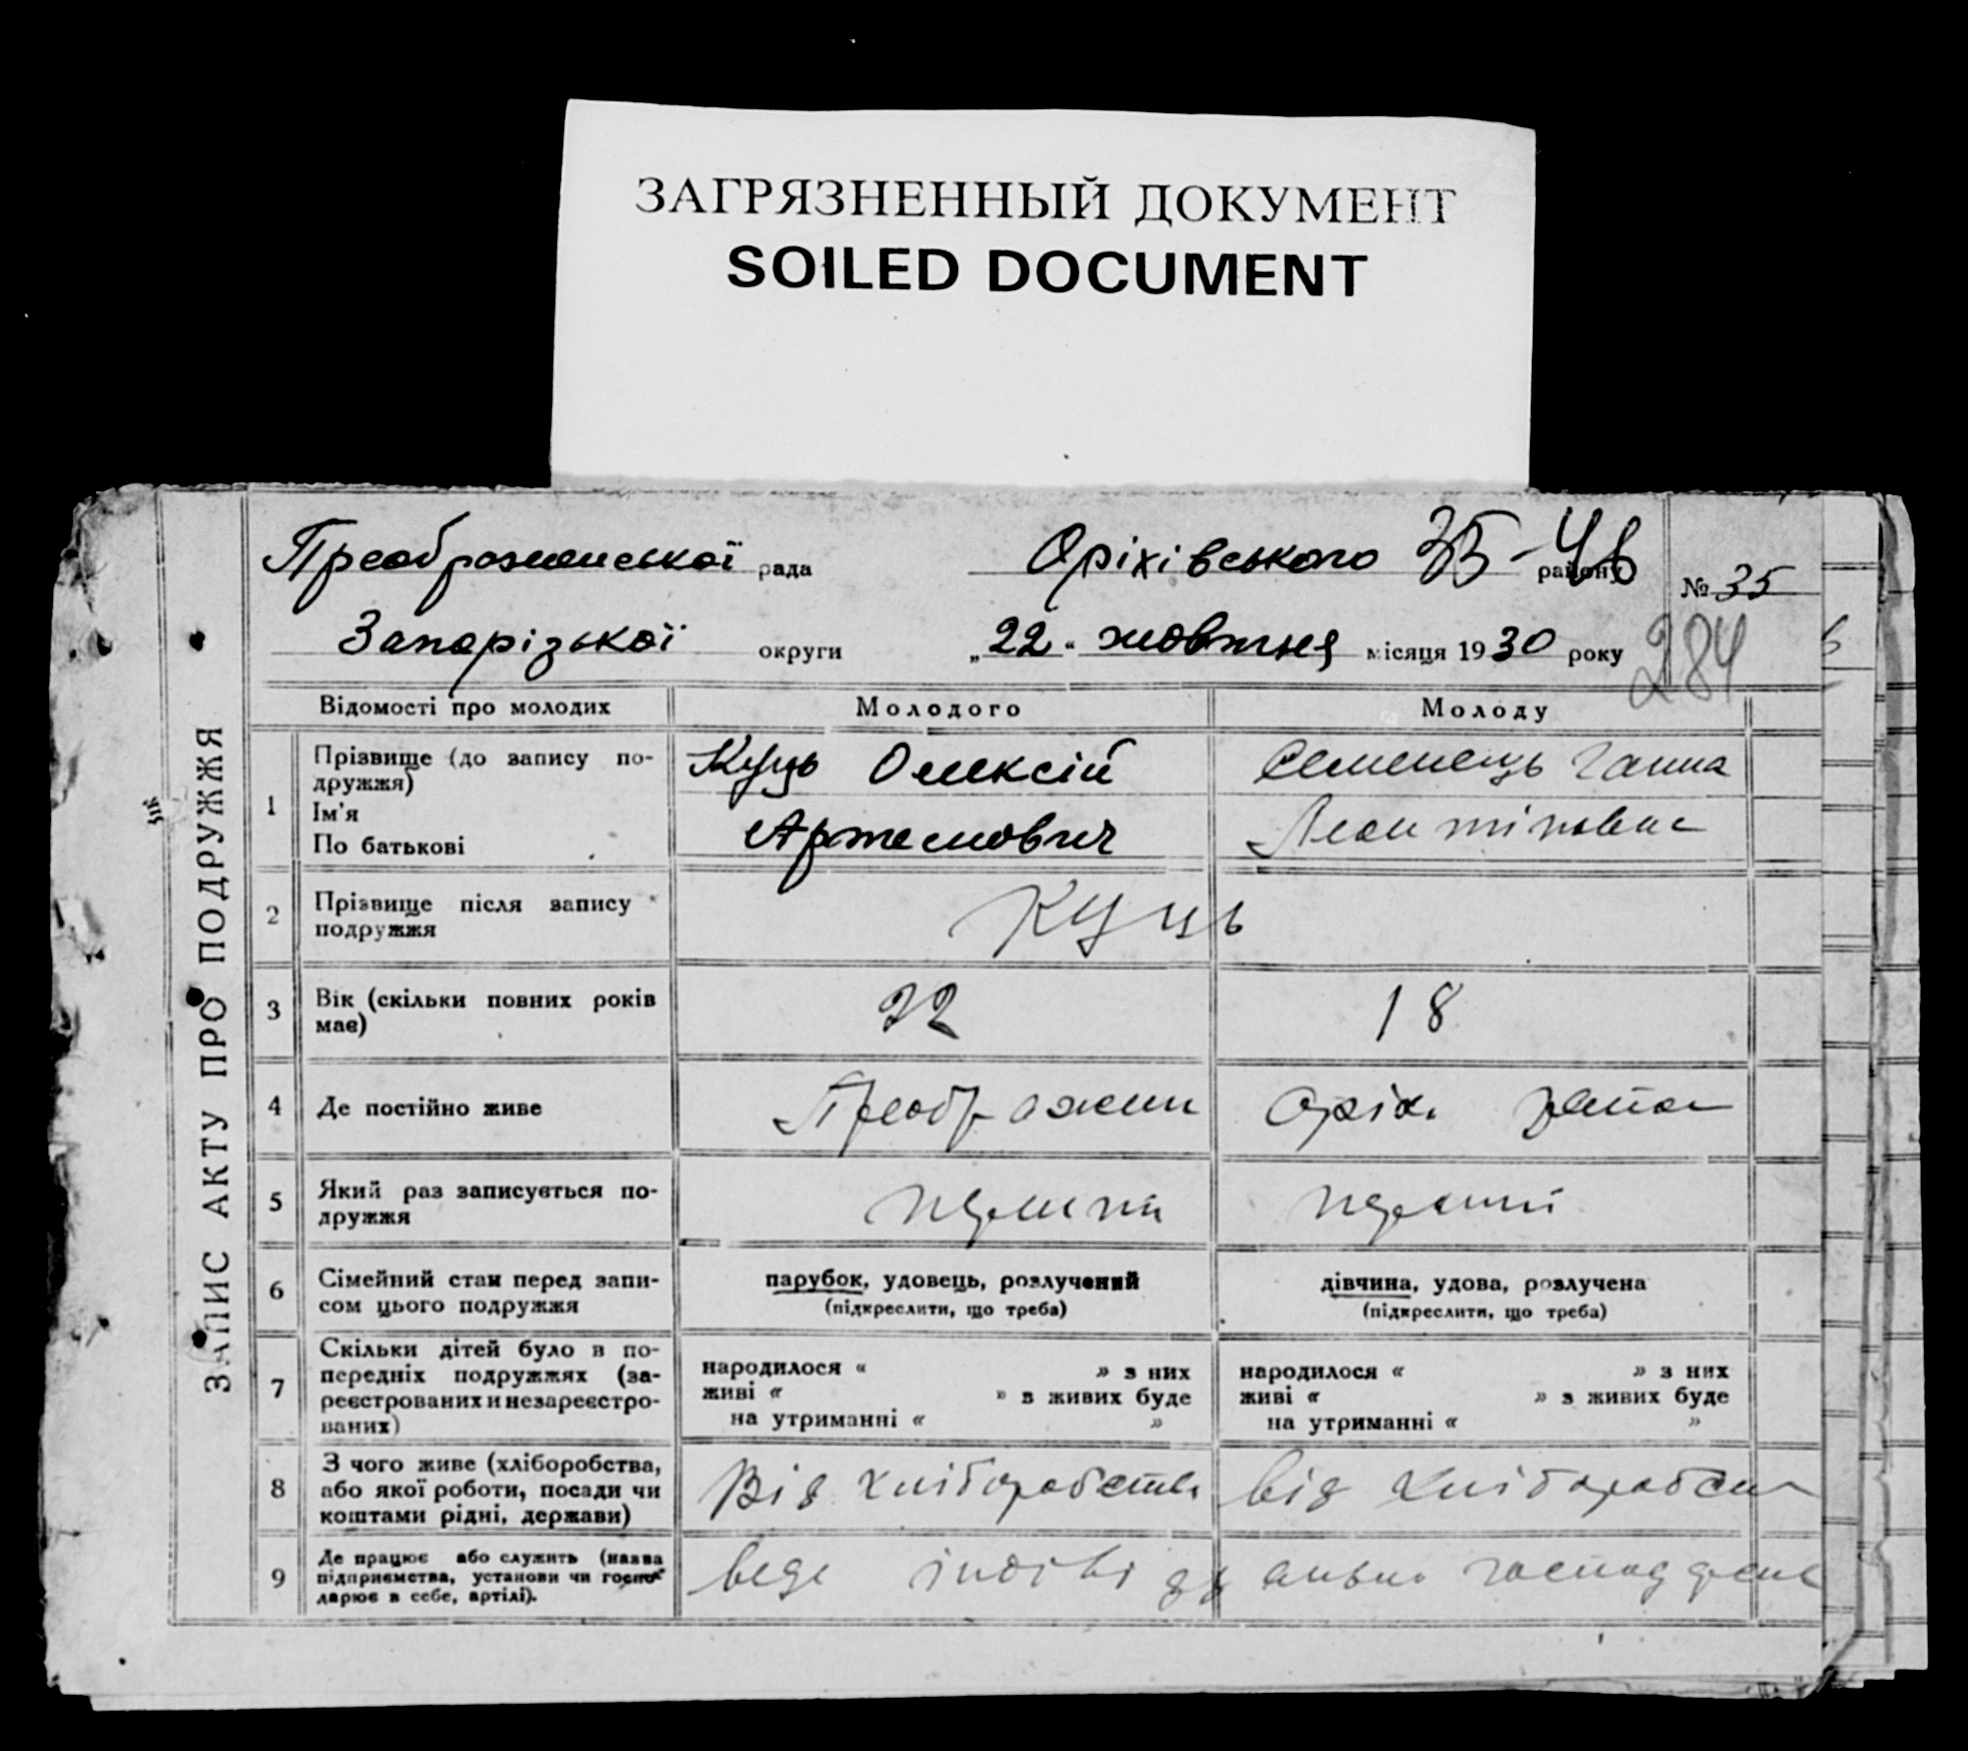 ЗАГРЯЗНЕННЫЙ ДОКУМЕНТ
SOILED DOCUMENT
ЗАПИС АКТУ ПРО ПОДРУЖЖЯ
Преображенської рада Оріхівського району № 35
Запорізької округи „22“ жовтня місяця 1930 року 284
Відомості про молодих Молодого Молоду
1 Прізвище (до запису по-
дружжя)
Ім'я
По батькові
Куць Олексій
Артемович
Семенець Ганна
2 Прізвище після запису
подружжя
Куць
3 Вік (скільки повних років
має)
22
18
4 Де постійно живе
Преображен
Оріх.
5 Який раз записується по-
дружжя
6 Сімейний стан перед запи-
сом цього подружжя
парубок, удовець, розлучений
(підкреслити, що треба)
дівчина, удова, розлучена
(підкреслити, що треба)
7 Скільки дітей було в по-
передніх подружжях (за-
реєстрованих и незареєстро-
ваних)
народилося « » з них
живі « » з живих буде
на утриманні « »
народилося « » з них
живі « » з живих буде
на утриманні « »
8 З чого живе (хліборобства,
або якої роботи, посади чи
коштами рідні, держави)
Від хліборобства
від хліборобства
9 Де працює або служить (назва
підприємства, установи чи госпо-
дарює в себе, артілі).
веде індівідуально